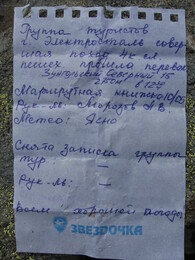 Группа туристов
г. Электросталь совер
шила поход 4к сл
пеших прошла перевал
Северный 15
2тон в 12ч
Маршрутная книжка
Рук-ль: Морозов А В
Метео: Ясно
Снята записка группы
тур. —
Рук-ль: —
Всем хорошей погоды
ЗВЕЗДОЧКА